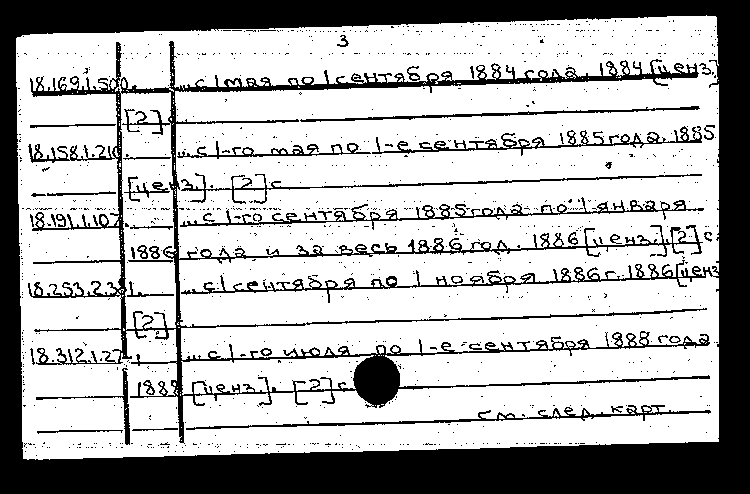 3
18.169.1.500. ...с 1 мая по 1 сентября 1884 года. 1884 [ценз.]
[2] с.
18.158.1.210. ...с 1-го мая по 1-е сентября 1885 года. 1885
[ценз.]. [2] с
18.191.1.107. ...с 1-го сентября 1885 года по 1 января
1886 года и за весь 1886 год. 1886 [ценз.]. [2] с.
18.253.2.381. ...с 1 сентября по 1 ноября 1886 г. 1886 [ценз
[2]
18.312.1.27. ...с 1-го июля по 1-е сентября 1888 года.
1888 [ценз.]. [2] с
см. след. карт.